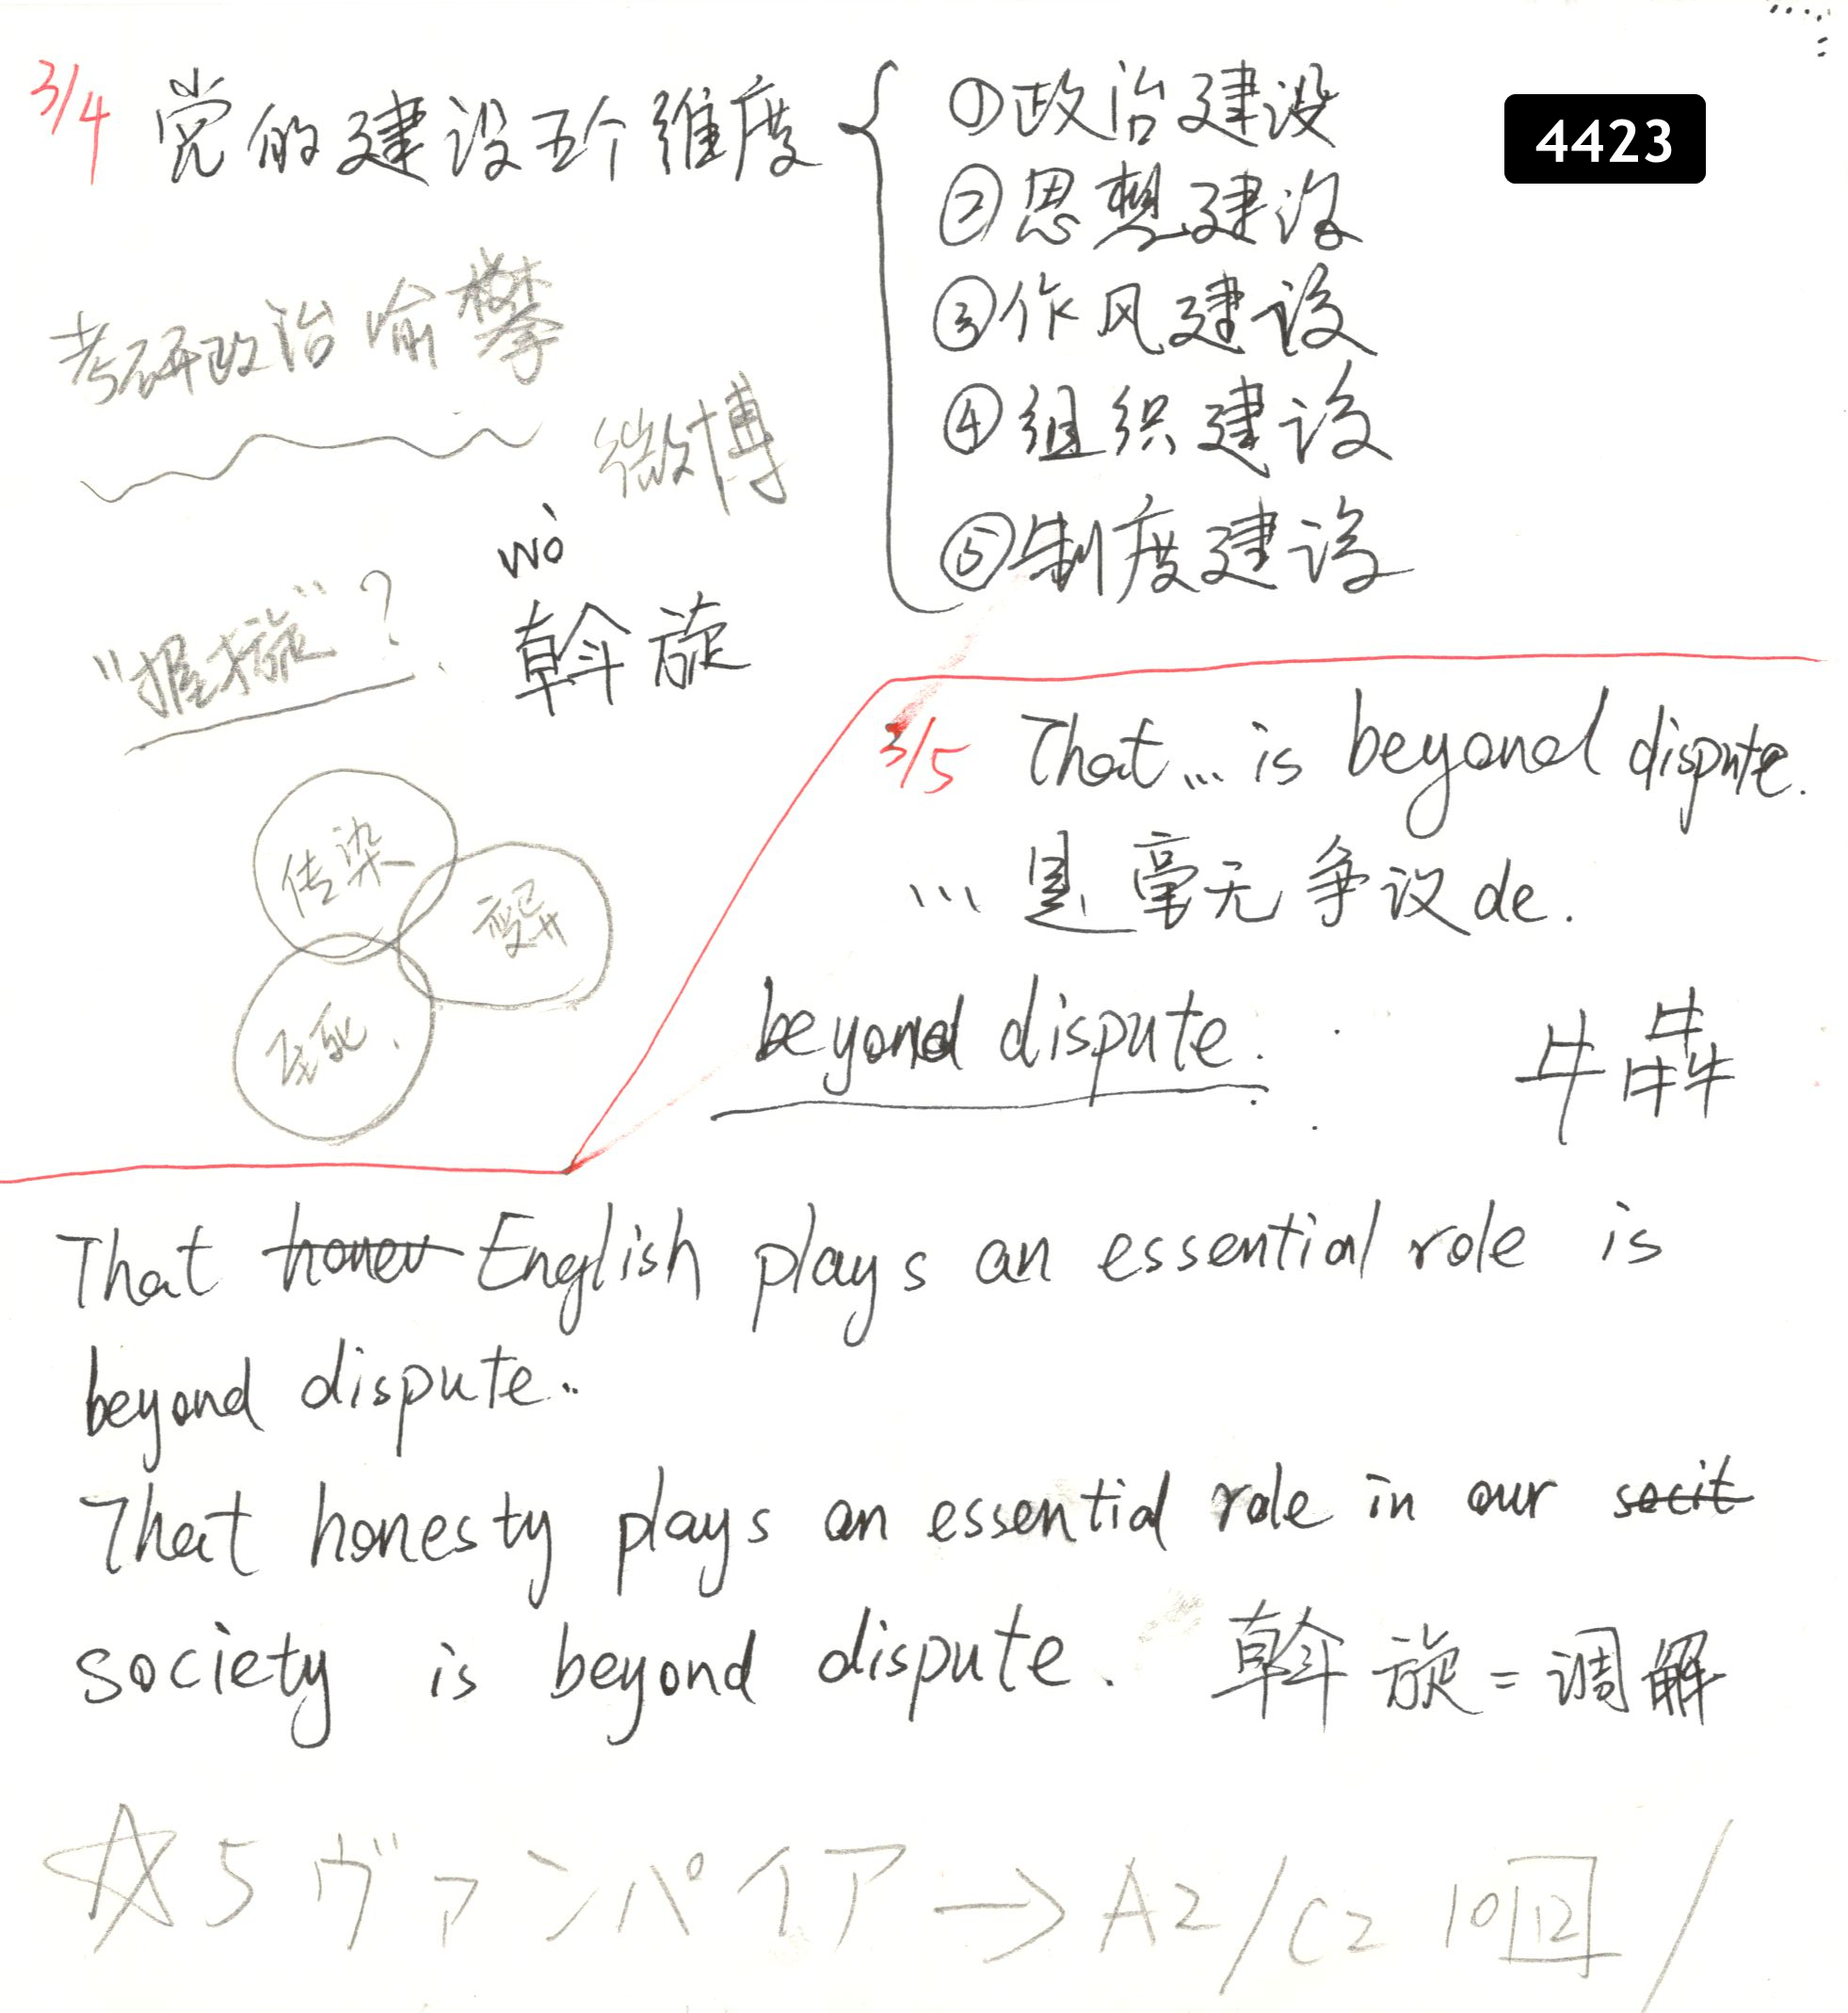 3/4 党的建设五个维度
①政治建设
②思想建设
③作风建设
④组织建设
⑤制度建设
4423
考研政治喻攀
微博
wò
"握旋"? 斡旋
传染
3/5 That... is beyond dispute.
... 是毫无争议de.
beyond dispute.
牛犇
That honev English plays an essential role is
beyond dispute.
That honesty plays an essential role in our socit
society is beyond dispute. 斡旋=调解
☆5 ヴァンパイア → A2/C2 10 12 /